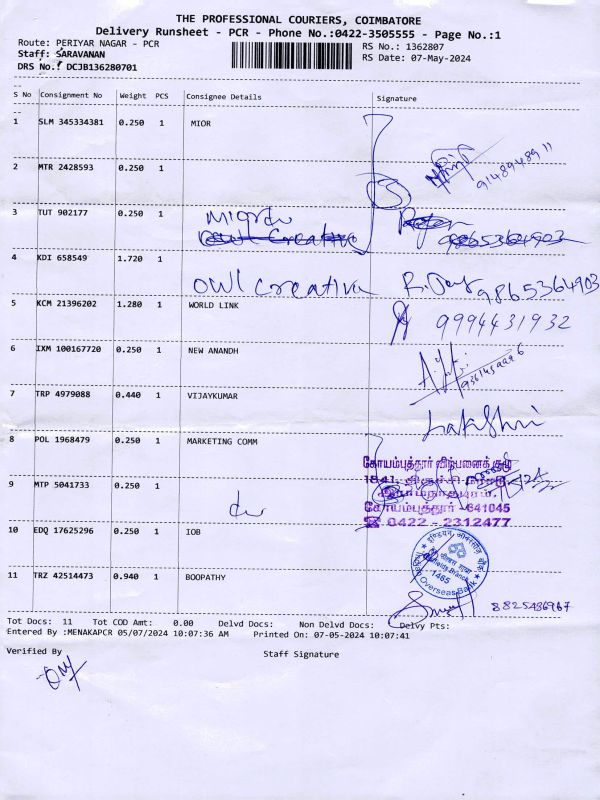 THE PROFESSIONAL COURIERS, COIMBATORE
Delivery Runsheet - PCR - Phone No.:0422-3505555 - Page No.:1
Route: PERIYAR NAGAR - PCR
RS No.: 1362807
Staff: SARAVANAN
RS Date: 07-May-2024
DRS No.: DCJB136280701
S No Consignment No Weight PCS Consignee Details Signature
1 SLM 345334381 0.250 1 MIOR
2 MTR 2428593 0.250 1
9148948911
3 TUT 902177 0.250 1 Migrdu
Owl Creative 9865364903
4 KDI 658549 1.720 1
owl creative 9865364903
5 KCM 21396202 1.280 1 WORLD LINK
9994431932
6 IXM 100167720 0.250 1 NEW ANANDH
7 TRP 4979088 0.440 1 VIJAYKUMAR
8 POL 1968479 0.250 1 MARKETING COMM
கோயம்புத்தூர் விற்பனைக் குழு
1841, திருச்சி ரோடு,
9 MTP 5041733 0.250 1 du
இராமநாதபுரம்,
கோயம்புத்தூர் - 641045
☎ 0422 - 2312477
10 EDQ 17625296 0.250 1 IOB
1465
Overseas Bank
11 TRZ 42514473 0.940 1 BOOPATHY
8825486967
Tot Docs: 11 Tot COD Amt: 0.00 Delvd Docs: Non Delvd Docs: Delvy Pts:
Entered By :MENAKAPCR 05/07/2024 10:07:36 AM Printed On: 07-05-2024 10:07:41
Verified By Staff Signature